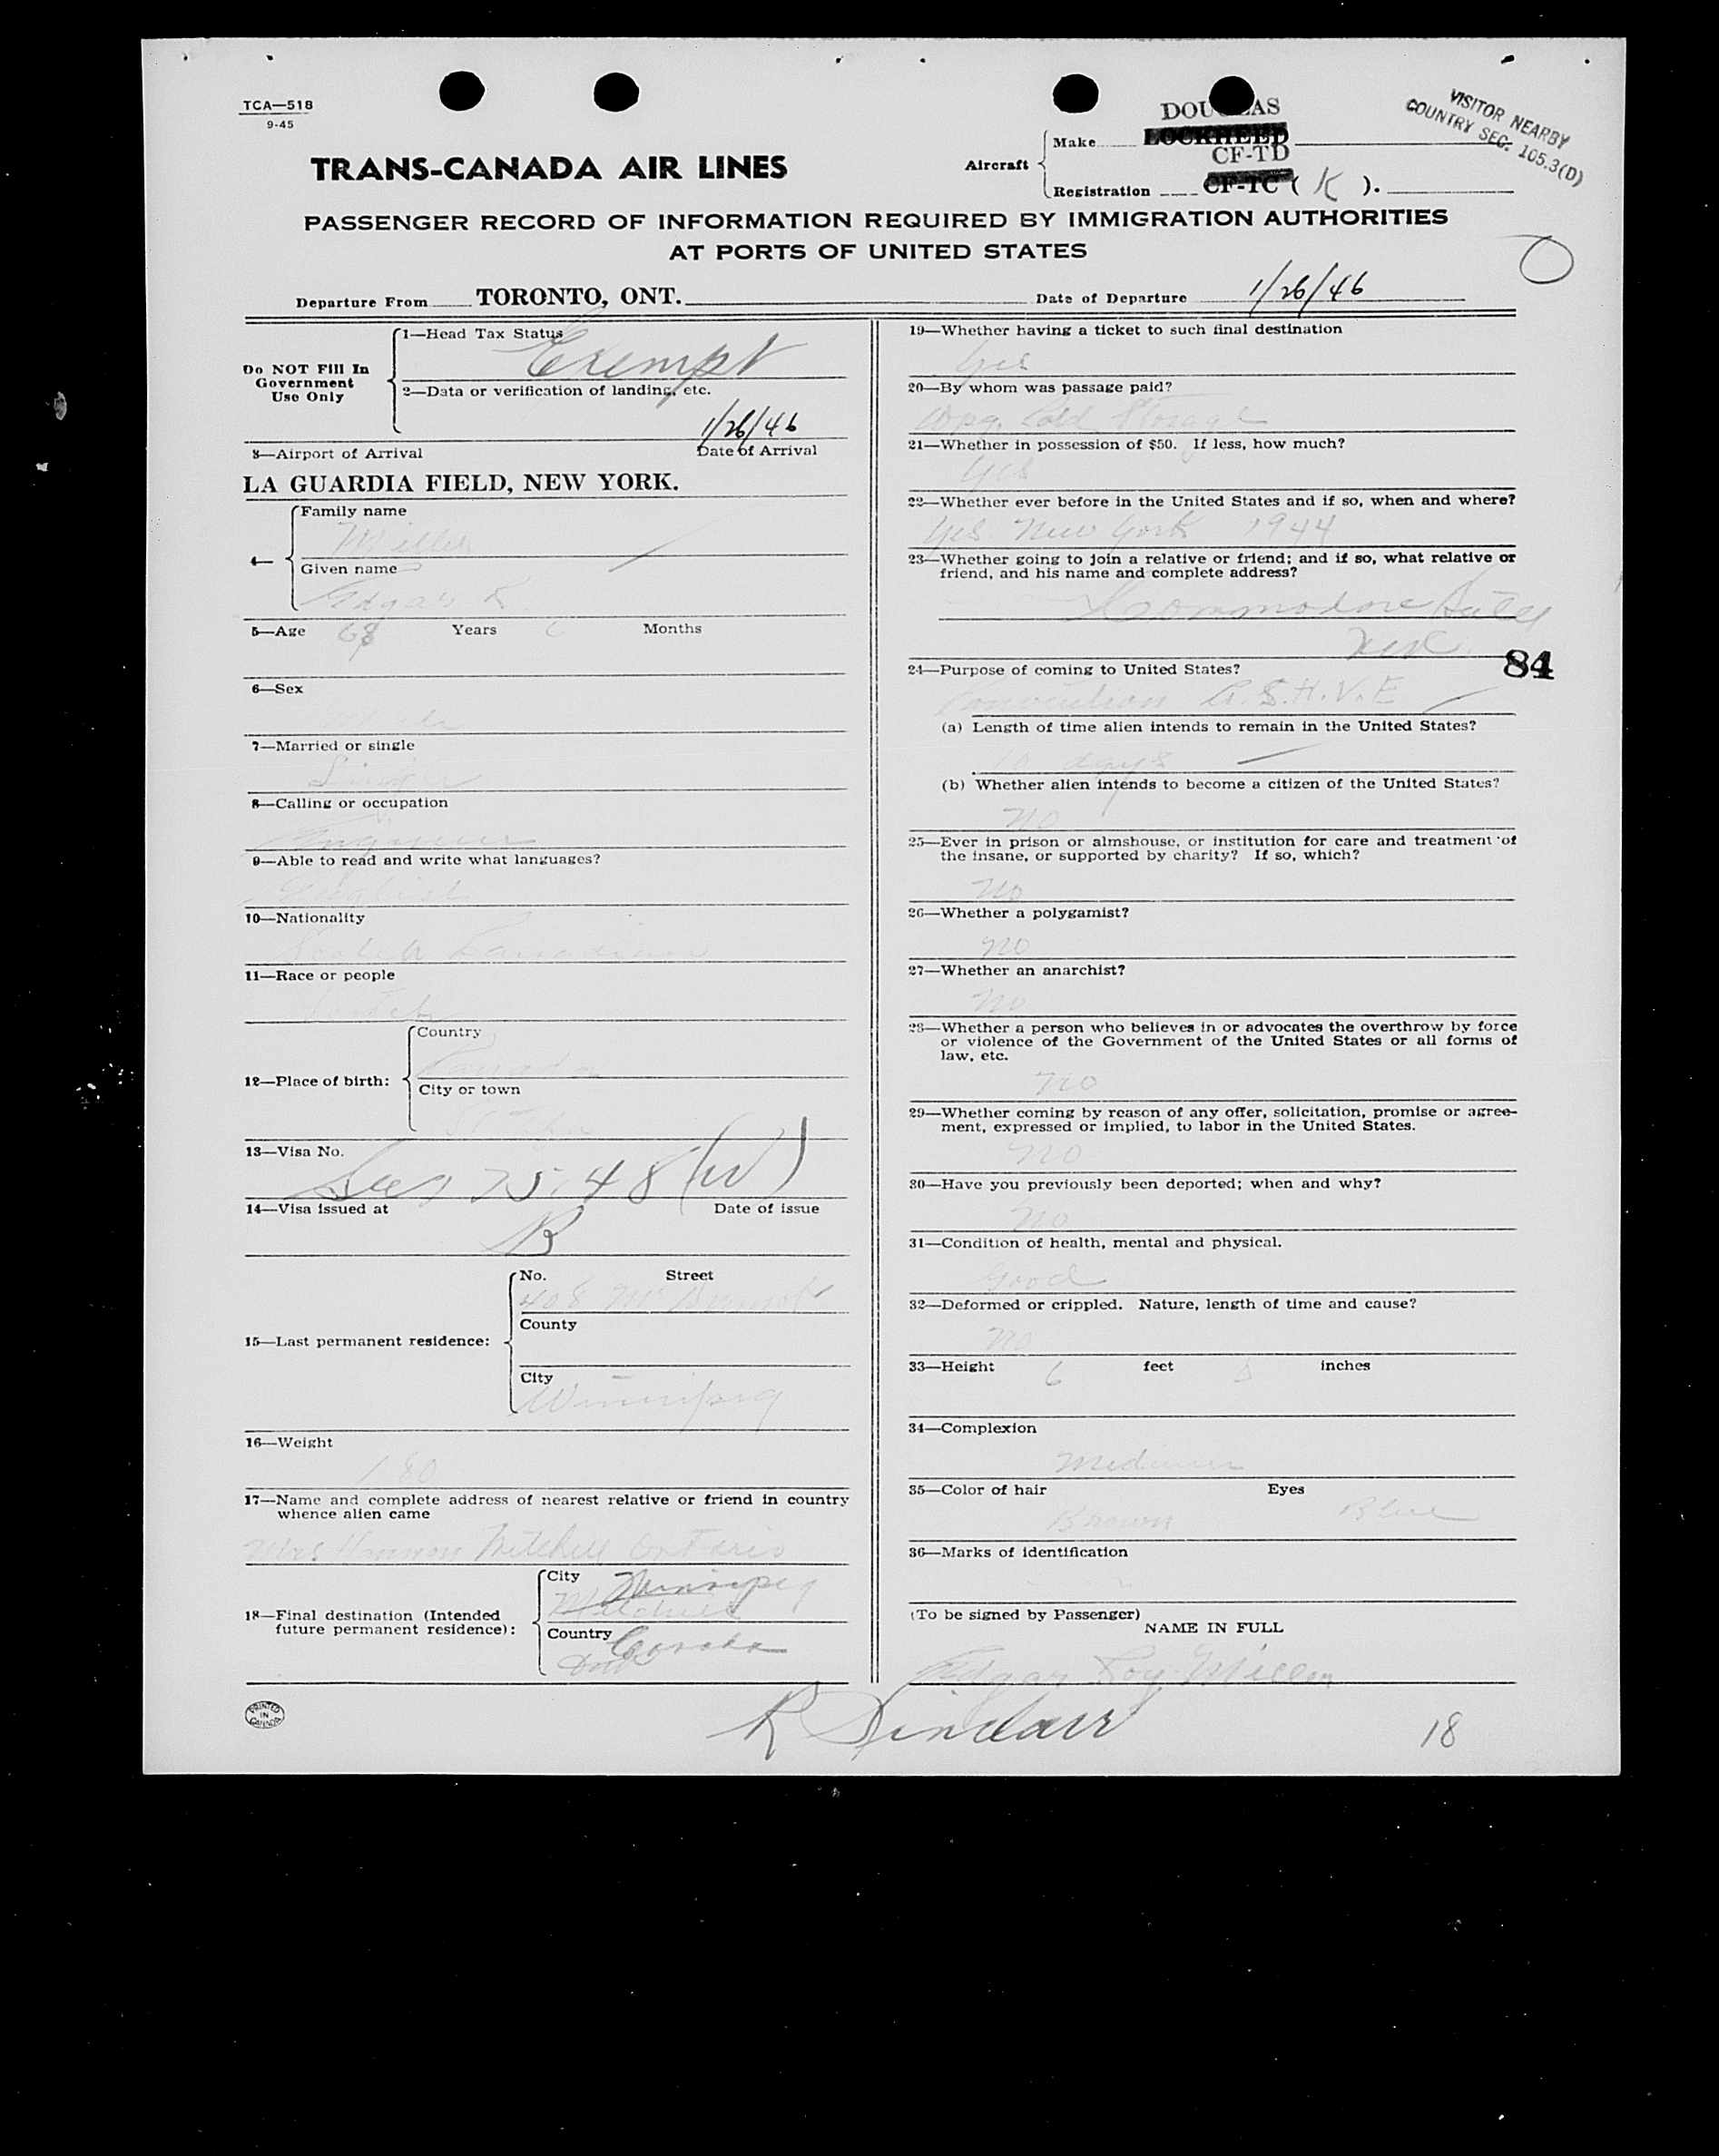 TCA—518
9-45
TRANS-CANADA AIR LINES
Aircraft
Make
DOUGLAS
LOCKHEED
CF-TD
Registration CF-TC ( K ).
VISITOR NEARBY
COUNTRY SEC. 105.3(D)
PASSENGER RECORD OF INFORMATION REQUIRED BY IMMIGRATION AUTHORITIES
AT PORTS OF UNITED STATES
Departure From TORONTO, ONT. Date of Departure 1/26/46
Do NOT Fill In
Government
Use Only
1—Head Tax Status
Exempt
2—Data or verification of landing, etc.
1/26/46
3—Airport of Arrival Date of Arrival
LA GUARDIA FIELD, NEW YORK.
4—
Family name
Miller
Given name
Edgar R
5—Age 68 Years Months
6—Sex
Male
7—Married or single
Single
8—Calling or occupation
Engineer
9—Able to read and write what languages?
English
10—Nationality
Canadian
11—Race or people
Scotch
12—Place of birth:
Country
Canada
City or town
13—Visa No.
Sec 75.48 (W)
14—Visa issued at Date of issue
B
15—Last permanent residence:
No. Street
408
County
City
Winnipeg
16—Weight
180
17—Name and complete address of nearest relative or friend in country
whence alien came
Mrs Mitchell Ontario
18—Final destination (Intended
future permanent residence):
City Winnipeg
Mitchell
Country Canada
19—Whether having a ticket to such final destination
Yes
20—By whom was passage paid?
Wpg. Cold Storage
21—Whether in possession of $50. If less, how much?
Yes
22—Whether ever before in the United States and if so, when and where?
Yes New York 1944
23—Whether going to join a relative or friend; and if so, what relative or
friend, and his name and complete address?
Commodore Hotel
84
24—Purpose of coming to United States?
Convention A.S.H.V.E
(a) Length of time alien intends to remain in the United States?
10 days
(b) Whether alien intends to become a citizen of the United States?
No
25—Ever in prison or almshouse, or institution for care and treatment of
the insane, or supported by charity? If so, which?
No
26—Whether a polygamist?
No
27—Whether an anarchist?
No
28—Whether a person who believes in or advocates the overthrow by force
or violence of the Government of the United States or all forms of
law, etc.
No
29—Whether coming by reason of any offer, solicitation, promise or agree-
ment, expressed or implied, to labor in the United States.
No
30—Have you previously been deported; when and why?
No
31—Condition of health, mental and physical.
Good
32—Deformed or crippled. Nature, length of time and cause?
No
33—Height 6 feet inches
34—Complexion
Medium
35—Color of hair Eyes
Brown Blue
36—Marks of identification
(To be signed by Passenger)
NAME IN FULL
Edgar Roy Miller
PRINTED
IN
CANADA
R Sinclair
18